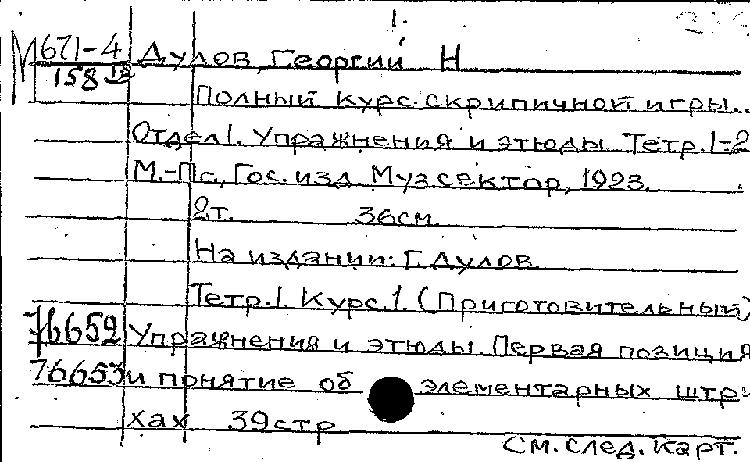 1.
М 671-4 Дулов, Георгий Н
158
Полный курс скрипичной игры..
Отдел 1. Упражнения и этюды. Тетр. 1-2
М.-Пг., Гос. изд. Музсектор, 1923.
2т. 36см.
На издании: Г. Дулов.
Тетр. 1. Курс. 1. (Приготовительный)
76652 Упражнения и этюды. Первая позиция
76653 и понятие об элементарных штри
хах 39стр
См. след. карт.